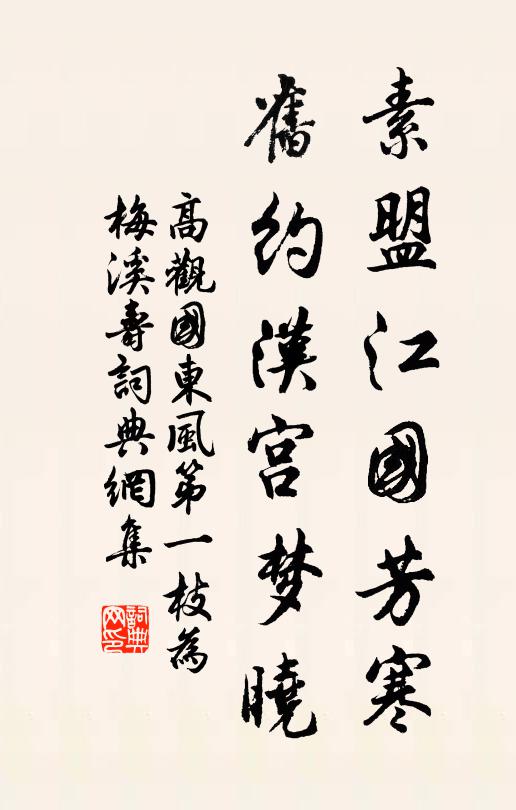 素盟江國芳寒
舊约漢宫梦曉
高觀國東風第一枝為
梅溪壽詞典網集
詞典网印